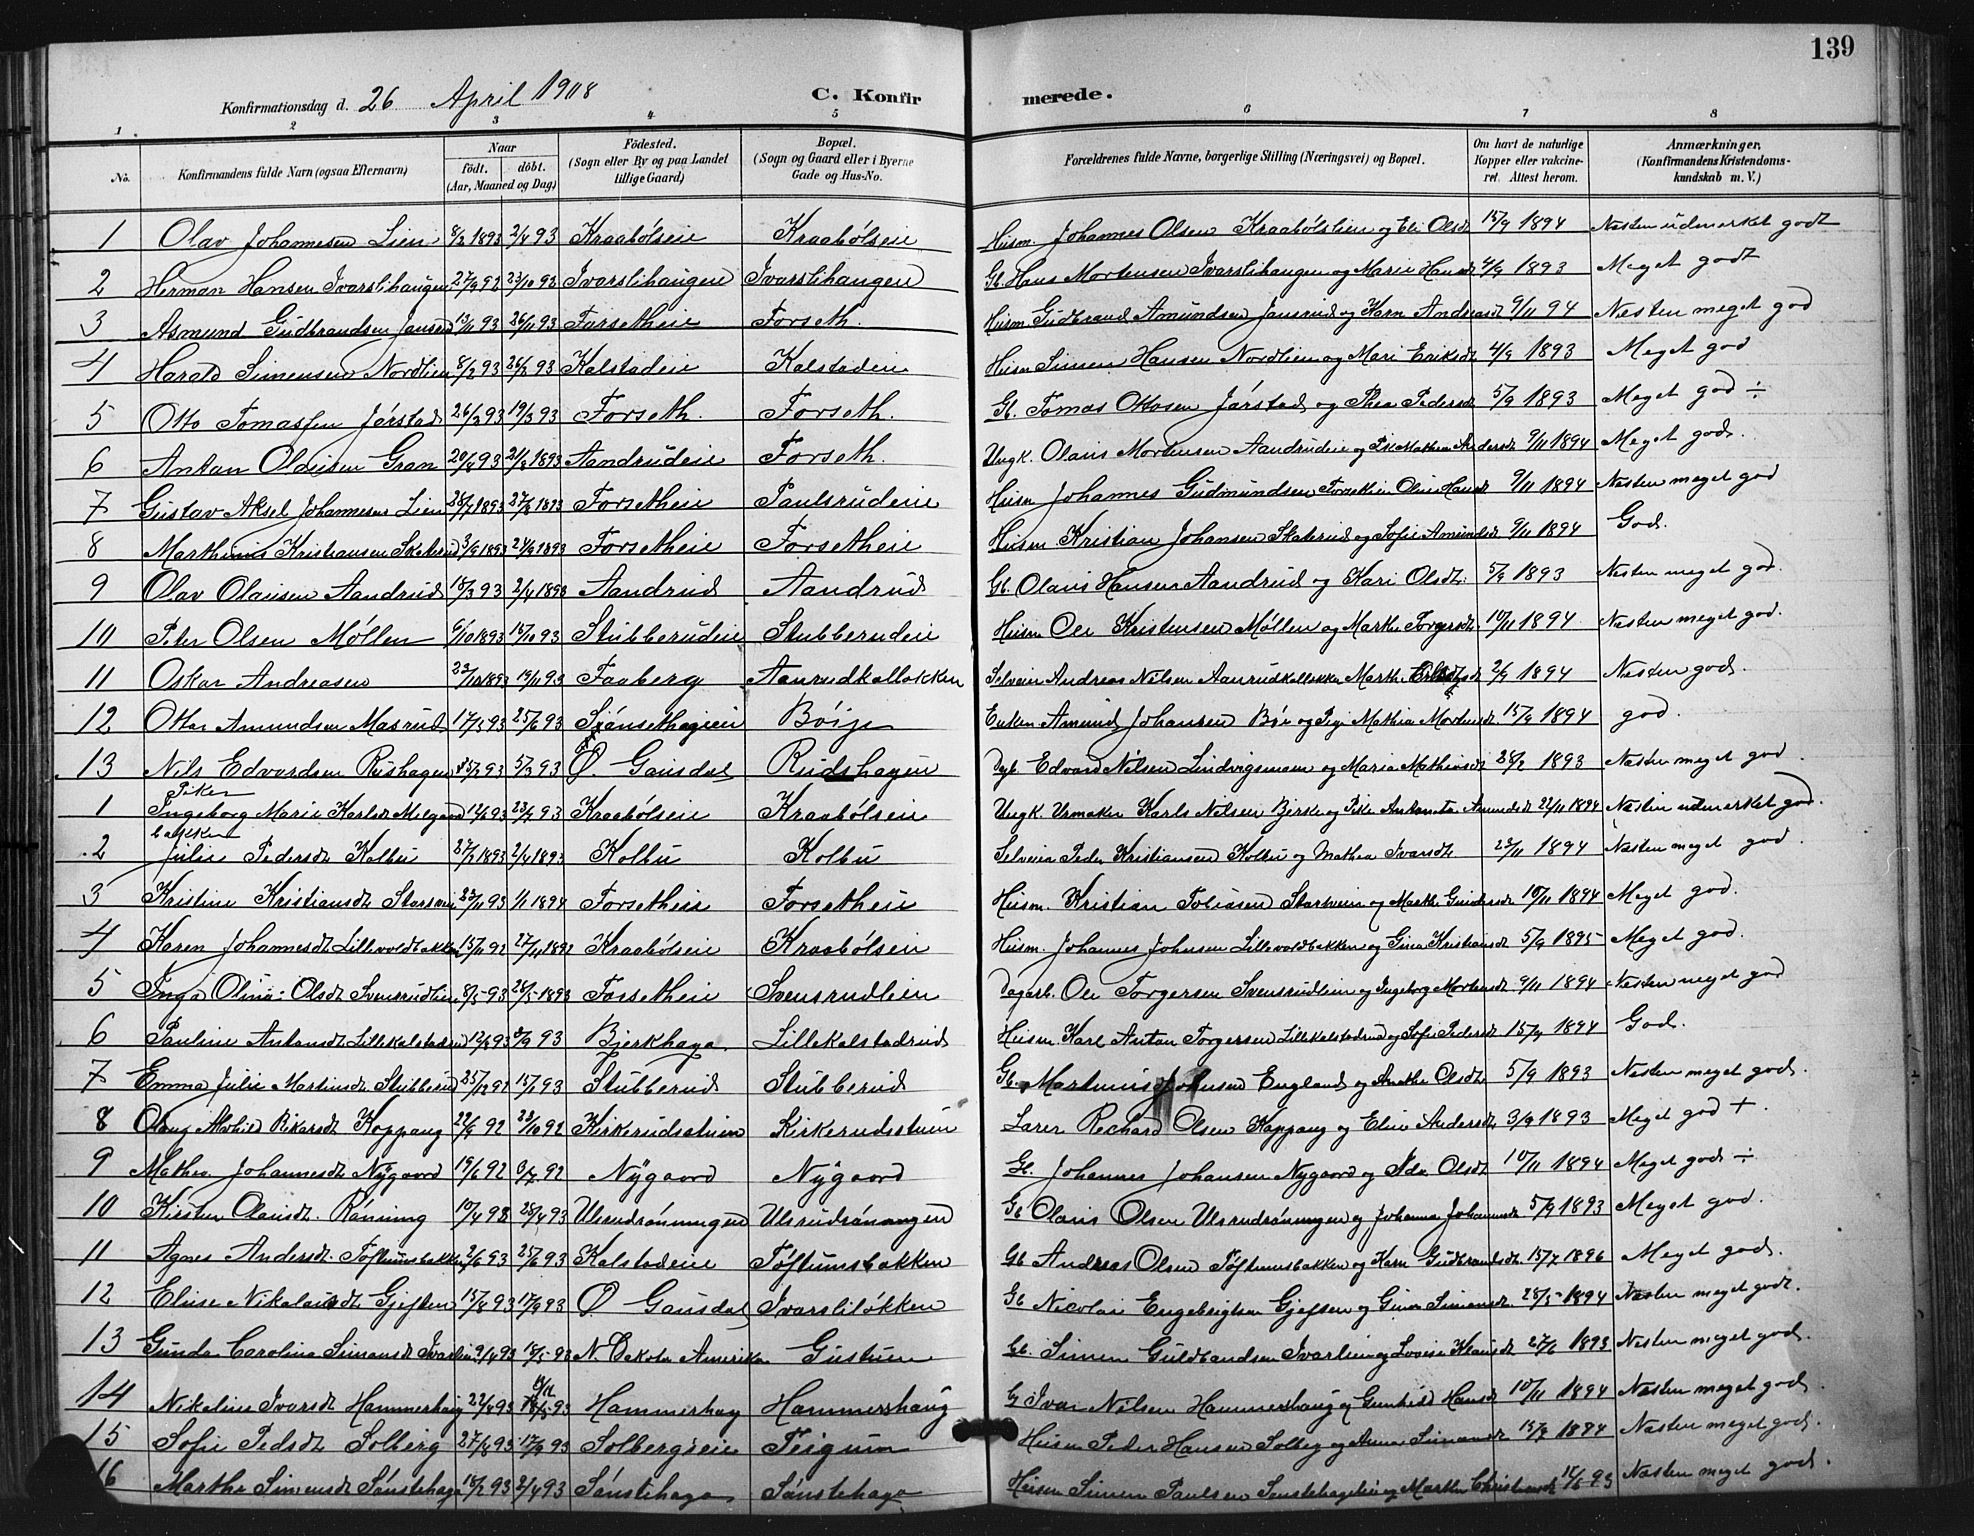 139
Konfirmationsdag d. 26 April 1908 C. Konfirmerede.
1 2 3 4 5 6 7 8
No. Konfirmandens fulde Navn (ogsaa Efternavn) Naar født. døbt. (Aar, Maaned og Dag) Födested. (Sogn eller By og paa Landet tillige Gaard) Bopæl. (Sogn og Gaard eller i Byerne Gade og Hus-No. Forældrenes fulde Navne, borgerlige Stilling (Næringsvei) og Bopæl. Om havt de naturlige Kopper eller vakcineret. Attest herom. Anmærkninger. (Konfirmandens Kristendomskundskab m. V.)
1 Olav Johannesen Lien 8/3 1893 2/4 93 Kraabølseie Kraabølseie Husm. Johannes Olsen Kraabølslien og Eli Olsdt 15/9 1894 Næsten udmerket godt
2 Herman Hansen Ivarslihaugen 27/9 92 23/10 93 Ivarslihaugen Ivarslihaugen Gb. Hans Mortensen Ivarslihaugen og Marie Hansdt 4/9 1893 Meget godt
3 Asmund Gudbrandsen Jansrud 13/11 93 26/11 93 Forsetheie Forseth. Husm Gudbrand Amundsen Jansrud og Karn Andreasdt 9/11 94 Næsten meget god
4 Harald Simensen Nordlien 8/2 93 26/2 93 Kalstadeie Kalstadeie Husm Simen Hansen Nordlien og Mari Eriksdt 4/9 1893 Meget god
5 Otto Tomassen Jørstad 26/2 93 19/3 93 Forseth. Forseth. Gb. Tomas Ottosen Jørstad og Thea Pedersdt 5/9 1893 Meget god ÷
6 Antan Olausen Gran 20/4 93 21/8 1893 Aandrudeie Forseth. Ungk. Olaus Mortensen Aandrudeie og Pike Mathea Andersdt 9/11 1894 Meget god.
7 Gustav Aksel Johannesen Lien 28/7 1893 27/8 1893 Forsetheie Paulsrudeie Husm Johannes Gudmundsen Forsethlien Oline Hansdt 9/11 1894 Næsten meget god
8 Marthinus Kristiansen Skaterud 3/9 1893 24/9 1893 Forsetheie Forsetheie Husm Kristian Johansen Skaterud og Sofie Amundsdt 9/11 1894 God.
9 Olav Olausen Aandrud 18/3 93 2/4 1893 Aandrud Aandrud Gb. Olaus Hansen Aandrud og Kari Olsdt. 5/9 1893 Næsten meget god.
10 Peter Olsen Møllen 6/10 1893 15/10 93 Stubberudeie Stubberudeie Husm Ole Kristensen Møllen og Marthe Torgersdt 10/11 1894 Næsten meget god.
11 Oskar Andreasen 23/10 1893 19/11 93 Faaberg Aanrudkalløkken Selveier Andreas Nilsen Aanrudkalløkken Marthe 2/9 1894 Næsten god.
12 Otto Amundsen Masrud 17/5 93 25/6 93 Bøije Enkem. Amund Johansen Bøe og Pige Mathia Mortensdt 15/9 1894 god.
13 Nils Edvardsen Rushagen 93 5/3 93 Ø. Gausdal Rudshagen Dagl. Edvard Nilsen Lindvigsmoen og Maria Mathiasdt 28/2 1893 Næsten meget god
Piker
1 Ingeborg Marie Karlsdt Melgaardbakken 12/6 93 23/7 93 Kraabølseie Kraabølseie Ungk. Urmaker Karls Nilsen Bjerke og Pike Antonette Amundsdt 22/11 1894 Næsten udmerket god.
2 Julie Pedersdt Kolbu 27/2 1893 2/4 1893 Kolbu Kolbu Selveier Peder Kristiansen Kolbu og Mathea Ivarsdt 23/11 1894 Næsten meget god.
3 Kristine Kristiansdt 23/11 93 1/1 1894 Forsetheie Forsetheie Husm. Kristian Tobiasen og Marthe Gundersdt 10/11 1894 Meget god.
4 Karen Johannesdt Lillevoldbakken 15/11 92 27/11 1892 Kraabølseie Kraabølseie Husm. Johannes Johnsen Lillevoldbakken og Gina Kristiansdt 5/9 1895 Meget god.
5 Inga Olina Olsdt Svensrudlien 8/5 93 28/5 1893 Forsetheie Svensrudlien Dagarb. Ole Torgersen Svensrudlien og Ingeborg Mortensdt 9/11 1894 Næsten meget god
6 Pauline Antonsdt Lillekalstadrud 12/8 93 3/9 93 Bjerkhaga Lillekalstadrud Husm. Karl Antan Torgersen Lillekalstadrud og Sofie Pedersdt 15/9 1894 God.
7 Emma Julie Martinusdt Stubberud 25/12 92 15/1 93 Stubberud Stubberud Gb. Martinus Johnsen England og Anethe Olsdt 5/9 1893 Næsten meget god.
8 Olaug Alvhild Rikarsdt Koppang 22/9 92 23/10 92 Kirkerudsstuen Kirkerudsstuen Lærer Rechard Olsen Koppang og Eline Andersdt 3/9 1893 Meget god +.
9 Mathea Johannesdt Nygaard 19/6 92 3/7 92 Nygaard Nygaard Gb. Johannes Johansen Nygaard og Olsdt 10/11 1894 Meget god ÷
10 Kirsten Olausdt. Rønning 10/4 93 28/4 93 Ulsrudrønningen Ulsrudrønningen Gb Olaus Olsen Ulsrudrønningen og Johanna Johannesdt 5/9 1893 Meget god.
11 Agnes Andersdt. Tøftumsbakken 2/6 93 25/6 93 Kalstadeie Tøftumsbakken Gb Andreas Olsen Tøftumsbakken og Karn Gudbrandsdt. 15/7 1896 Meget god.
12 Elise Nikolaisdt Gjefsen 15/8 93 17/9 93 Ø Gausdal Ivarsliløkken Gb Nicolai Engebrigtsen Gjefsen og Gina Simensdt 28/5 1894 Næsten meget godt.
13 Gunda Carolina Simensdt Ivarslien 9/4 93 18/5 93 N. Dakota Amerika Gb. Simen Guldbrandsen Ivarslien og Lovise Klausdt 27/6 1893 Næsten meget god.
14 Nikoline Ivarsdt Hammershaug 22/4 93 93 Hammershaug Hammershaug G Ivar Nilsen Hammershaug og Gunhild Hansdt 10/11 1894 Næsten meget god.
15 Sofie Pedsdt Solberg 27/8 93 17/9 93 Solbergseie Teigum Husm Peder Hansen Solberg og Anne Simensdt 15/9 1894 Næsten meget god.
16 Marthe Simensdt Sønstehaga 18/2 93 2/4 93 Sønstehaga Sønstehaga Husm Simen Paulsen Sønstehagelien og Marthe Christiansdt 93 Næsten meget god.